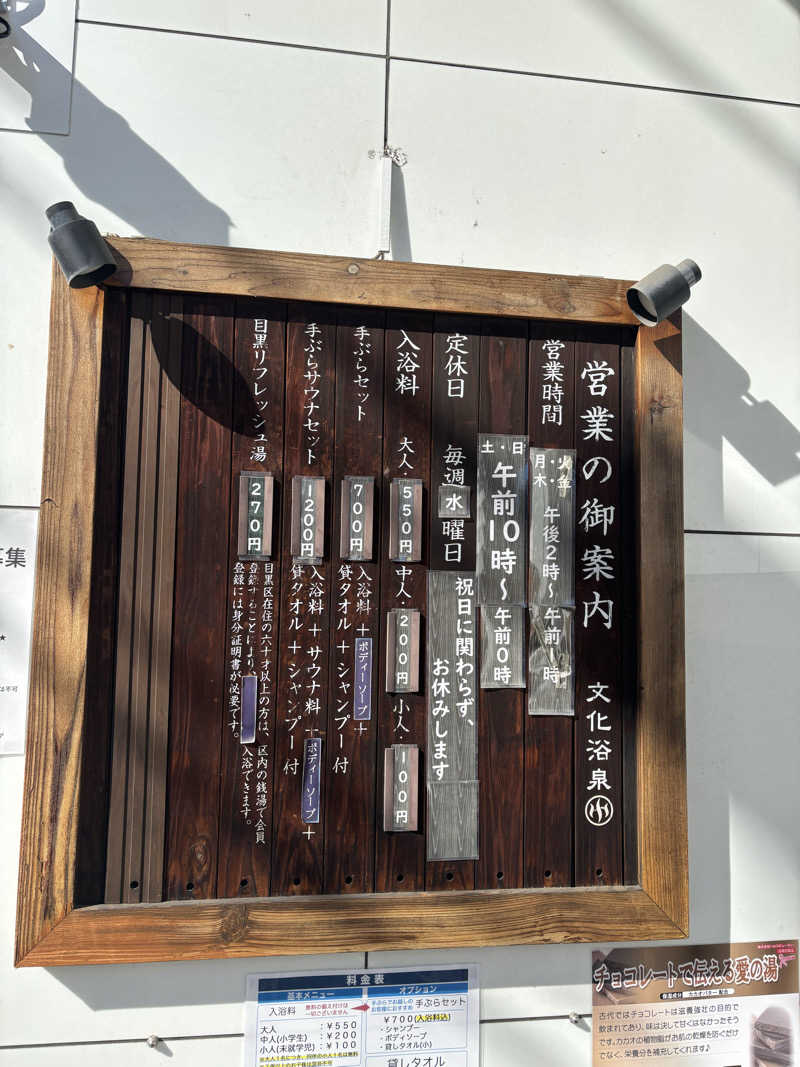 営業の御案内 文化浴泉
営業時間
月・火
木・金
午後2時〜午前1時
土・日 午前10時〜午前0時
定休日 毎週水曜日
祝日に関わらず、
お休みします
入浴料 大人・550円 中人・200円 小人・100円
手ぶらセット 700円 入浴料+ボディーソープ+
貸タオル+シャンプー付
手ぶらサウナセット 1200円 入浴料+サウナ料+ボディーソープ+
貸タオル+シャンプー付
目黒リフレッシュ湯 270円
目黒区在住の六十才以上の方は、区内の銭湯で会員
登録することにより 入浴できます。
登録には身分証明書が必要です。
募集
は不可
料金表
基本メニュー
入浴料
無料の備え付けは
一切ございません
大人 :¥550
中人(小学生) :¥200
小人(未就学児) :¥100
オプション
手ぶらでお越しの
お客様におすすめ
手ぶらセット
¥700(入浴料込)
・シャンプー
・ボディソープ
・貸しタオル(小)
貸しタオル
チョコレートで伝える愛の湯
保湿成分 カカオバター 配合
古代ではチョコレートは滋養強壮の目的で
飲まれており、味は決して甘くはなかったそう
です。カカオの植物脂がお肌の乾燥を防ぐだけ
でなく、栄養分を補充してくれます♪